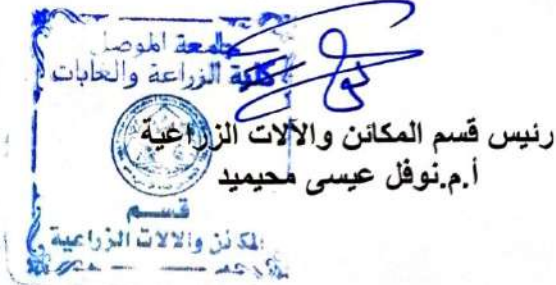 جامعة الموصل
كلية الزراعة والغابات
رئيس قسم المكائن والآلات الزراعية
أ.م.نوفل عيسى محيميد
قسم
المكائن والالات الزراعية